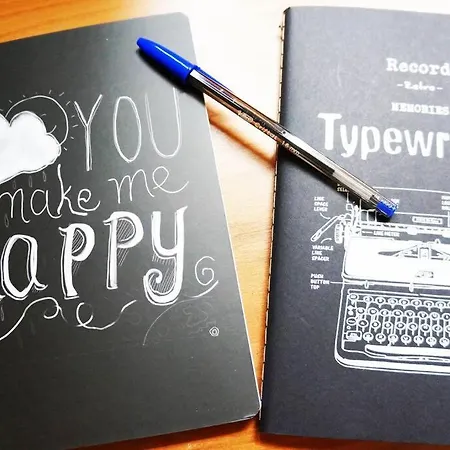 YOU
make me
HAPPY
Record
-Retro-
MEMORIES
Typewr
LINE
SPACE
LEVER
VARIABLE
LINE
SPACER
PUSH
BUTTON
TOP
LINE METER